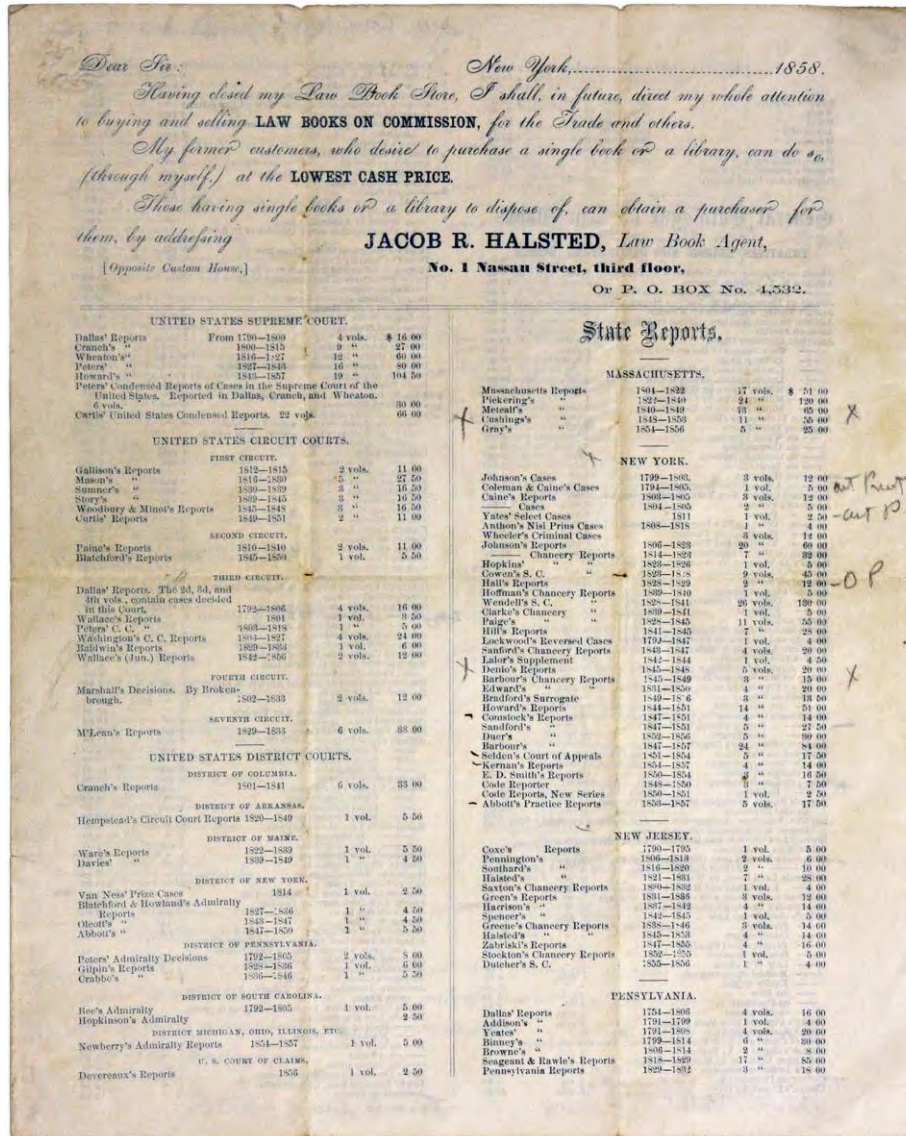 Dear Sir: New York,..............................1858.
Having closed my Law Book Store, I shall, in future, direct my whole attention
to buying and selling LAW BOOKS ON COMMISSION, for the Trade and others.
My former customers, who desire to purchase a single book or a library, can do so,
(through myself,) at the LOWEST CASH PRICE.
Those having single books or a library to dispose of, can obtain a purchaser for
them, by addressing JACOB R. HALSTED, Law Book Agent,
[Opposite Custom House.] No. 1 Nassau Street, third floor,
Or P. O. BOX No. 4,532.
UNITED STATES SUPREME COURT.
Dallas' Reports From 1790–1800 4 vols. $ 16 00
Cranch's " 1800–1815 9 " 27 00
Wheaton's " 1816–1827 12 " 60 00
Peters' " 1827–1843 16 " 80 00
Howard's " 1843–1857 19 " 104 50
Peters' Condensed Reports of Cases in the Supreme Court of the
United States. Reported in Dallas, Cranch, and Wheaton.
6 vols. 30 00
Curtis' United States Condensed Reports. 22 vols. 66 00
UNITED STATES CIRCUIT COURTS.
FIRST CIRCUIT.
Gallison's Reports 1812–1815 2 vols. 11 00
Mason's " 1816–1830 5 " 27 50
Sumner's " 1830–1839 3 " 16 50
Story's " 1839–1845 3 " 16 50
Woodbury & Minot's Reports 1845–1848 3 " 16 50
Curtis' Reports 1849–1851 2 " 11 00
SECOND CIRCUIT.
Paine's Reports 1810–1810 2 vols. 11 00
Blatchford's Reports 1845–1850 1 vol. 5 50
THIRD CIRCUIT.
Dallas' Reports. The 2d, 3d, and
4th vols., contain cases decided
in this Court. 1792–1806 4 vols. 16 00
Wallace's Reports 1801 1 vol. 3 50
Peters' C. C. " 1803–1818 1 " 5 00
Washington's C. C. Reports 1803–1827 4 vols. 24 00
Baldwin's Reports 1829–1833 1 vol. 6 00
Wallace's (Jun.) Reports 1842–1856 2 vols. 12 00
FOURTH CIRCUIT.
Marshall's Decisions. By Broken-
brough. 1802–1833 2 vols. 12 00
SEVENTH CIRCUIT.
M'Lean's Reports 1829–1833 6 vols. 33 00
UNITED STATES DISTRICT COURTS.
DISTRICT OF COLUMBIA.
Cranch's Reports 1801–1841 6 vols. 33 00
DISTRICT OF ARKANSAS.
Hempstead's Circuit Court Reports 1820–1849 1 vol. 5 50
DISTRICT OF MAINE.
Ware's Reports 1822–1839 1 vol. 5 50
Davies' " 1839–1849 1 " 4 50
DISTRICT OF NEW YORK.
Van Ness' Prize Cases 1814 1 vol. 2 50
Blatchford & Howland's Admiralty
Reports 1827–1836 1 " 4 50
Olcott's " 1843–1847 1 " 4 50
Abbott's " 1847–1850 1 " 5 50
DISTRICT OF PENNSYLVANIA.
Peters' Admiralty Decisions 1792–1805 2 vols. 8 00
Gilpin's Reports 1828–1836 1 vol. 6 00
Crabbe's " 1836–1846 1 " 5 50
DISTRICT OF SOUTH CAROLINA.
Bee's Admiralty 1792–1805 1 vol. 5 00
Hopkinson's Admiralty 2 50
DISTRICT MICHIGAN, OHIO, ILLINOIS, ETC.
Newberry's Admiralty Reports 1854–1857 1 vol. 5 00
U. S. COURT OF CLAIMS.
Devereaux's Reports 1856 1 vol. 2 50
State Reports.
MASSACHUSETTS.
Massachusetts Reports 1804–1822 17 vols. $ 51 00
Pickering's " 1822–1840 24 " 120 00
Metcalf's " 1840–1849 13 " 65 00
x Cushings's " 1848–1853 11 " 55 00 x
Gray's " 1854–1856 5 " 25 00
x NEW YORK.
Johnson's Cases 1799–1803. 3 vols. 12 00
Coleman & Caine's Cases 1794–1805. 1 vol. 5 00 out Print
Caine's Reports 1803–1805 3 vols. 12 00
—— Cases 1804–1805 2 " 5 00
Yates' Select Cases 1811 1 vol. 2 50 –out P
Anthon's Nisi Prius Cases 1808–1818 1 " 4 00
Wheeler's Criminal Cases 3 vols. 12 00
Johnson's Reports 1806–1823 20 " 60 00
—— Chancery Reports 1814–1823 7 " 32 00
Hopkins' " " 1823–1826 1 vol. 5 00
Cowen's S. C. " 1823–1828 9 vols. 45 00
Hall's Reports 1828–1829 2 " 12 00 –O P
Hoffman's Chancery Reports 1839–1840 1 vol. 5 00
Wendell's S. C. " 1828–1841 26 vols. 130 00
Clarke's Chancery " 1839–1841 1 vol. 5 00
Paige's " " 1828–1845 11 vols. 55 00
Hill's Reports 1841–1845 7 " 28 00
Lockwood's Reversed Cases 1799–1847 1 vol. 4 00
Sanford's Chancery Reports 1843–1847 4 vols. 20 00
Lalor's Supplement 1842–1844 1 vol. 4 50
x Denio's Reports 1845–1848 5 vols. 20 00
Barbour's Chancery Reports 1845–1849 3 " 15 00 x
Edward's " " 1831–1850 4 " 20 00
Bradford's Surrogate 1849–1856 3 " 13 50
Howard's Reports 1844–1851 14 " 51 00
Comstock's Reports 1847–1851 4 " 14 00
Sandford's " 1847–1851 5 " 27 50
Duer's " 1852–1856 5 " 30 00
Barbour's " 1847–1857 24 " 84 00
Selden's Court of Appeals 1851–1854 5 " 17 50
Kernan's Reports 1854–1857 4 " 14 00
E. D. Smith's Reports 1850–1854 3 " 16 50
Code Reporter 1848–1850 3 " 7 50
Code Reports, New Series 1850–1851 1 vol. 2 50
Abbott's Practice Reports 1853–1857 5 vols. 17 50
NEW JERSEY.
Coxe's Reports 1790–1795 1 vol. 5 00
Pennington's " 1806–1813 2 vols. 6 00
Southard's " 1816–1820 2 " 10 00
Halsted's " 1821–1831 7 " 28 00
Saxton's Chancery Reports 1830–1832 1 vol. 4 00
Green's Reports 1831–1836 3 vols. 12 00
Harrison's " 1837–1842 4 " 14 00
Spencer's " 1842–1845 1 vol. 5 00
Greene's Chancery Reports 1838–1846 3 vols. 14 00
Halsted's " " 1845–1853 4 " 14 00
Zabriski's Reports 1847–1855 4 " 16 00
Stockton's Chancery Reports 1852–1855 1 vol. 5 00
Dutcher's S. C. 1855–1856 1 " 4 00
PENSYLVANIA.
Dallas' Reports 1754–1806 4 vols. 16 00
Addison's " 1791–1799 1 vol. 4 00
Yeates' " 1791–1808 4 vols. 20 00
Binney's " 1799–1814 6 " 30 00
Browne's " 1806–1814 2 " 8 00
Seageant & Rawle's Reports 1818–1829 17 " 85 00
Pennsylvania Reports 1829–1832 3 " 18 00